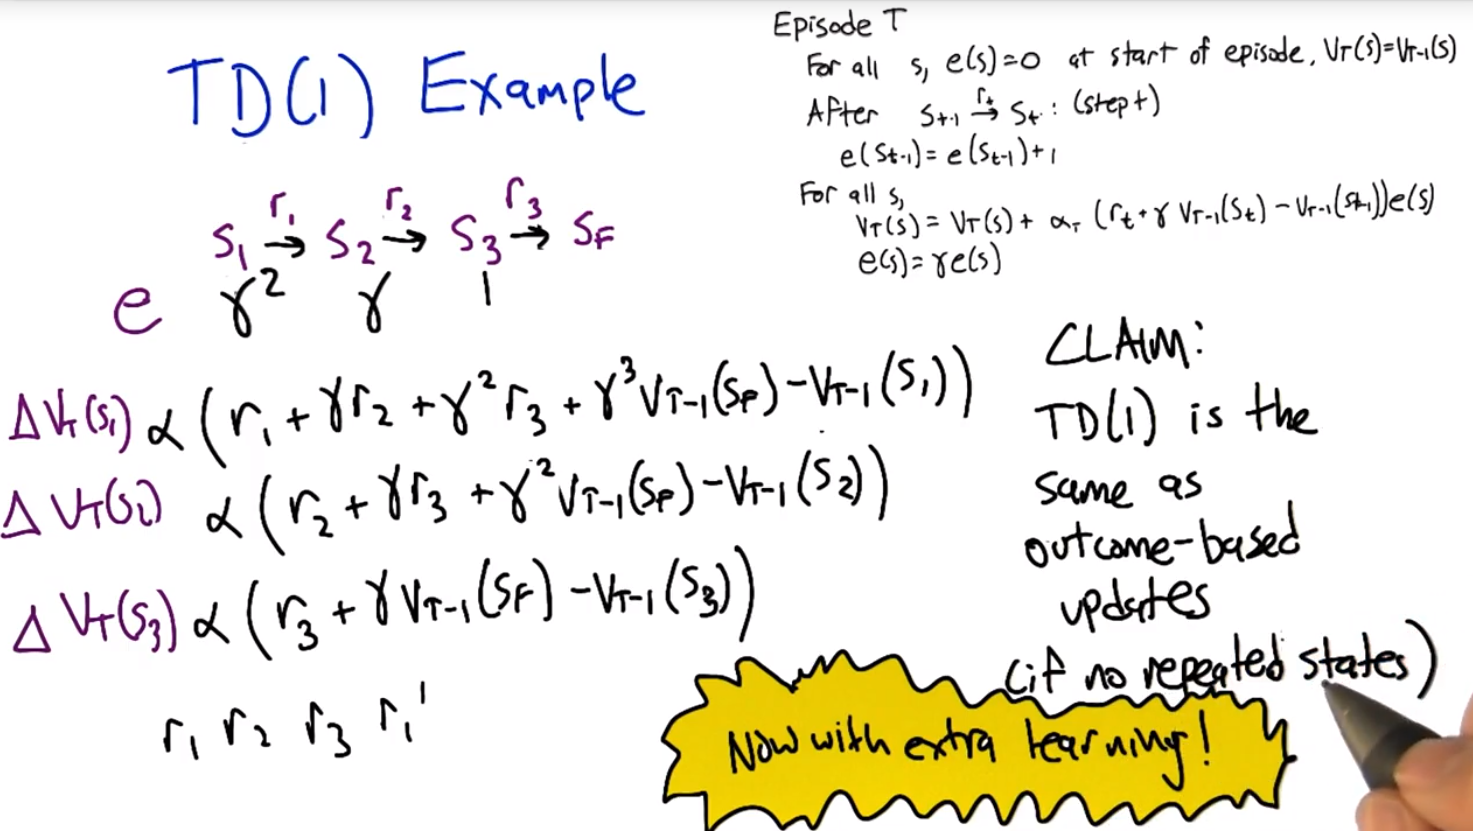 TD(1) Example
Episode T
For all s, e(s)=0 at start of episode, V_T(s)=V_{T-1}(s)
After S_{t-1} →^{r_t} S_t: (step t)
e(S_{t-1})=e(S_{t-1})+1
For all s,
V_T(s)=V_T(s)+α_T (r_t+γ V_{T-1}(S_t)-V_{T-1}(S_{t-1}))e(s)
e(s)=γe(s)
S_1 →^{r_1} S_2 →^{r_2} S_3 →^{r_3} S_F
e γ² γ 1
ΔV_T(S_1) α (r_1+γr_2+γ²r_3+γ³V_{T-1}(S_F)-V_{T-1}(S_1))
ΔV_T(S_2) α (r_2+γr_3+γ²V_{T-1}(S_F)-V_{T-1}(S_2))
ΔV_T(S_3) α (r_3+γV_{T-1}(S_F)-V_{T-1}(S_3))
r_1 r_2 r_3 r_1'
CLAIM:
TD(1) is the
same as
outcome-based
updates
(if no repeated states)
Now with extra learning!